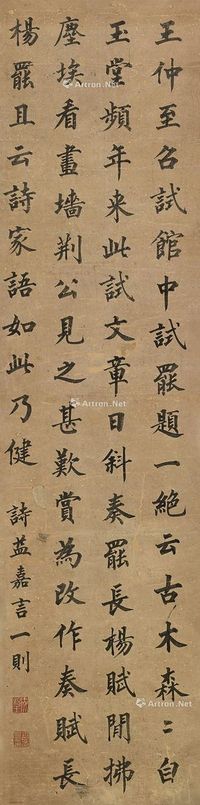 王仲至召試館中試罷題一絕云古木森〻白
玉堂頻年来此試文章日斜奏罷長楊賦閒拂
塵埃看畫墻荆公見之甚歎賞為改作奏賦長
楊罷且云詩家語如此乃健
詩益嘉言一則
Artron.Net
Artron.Net
Artron.Net